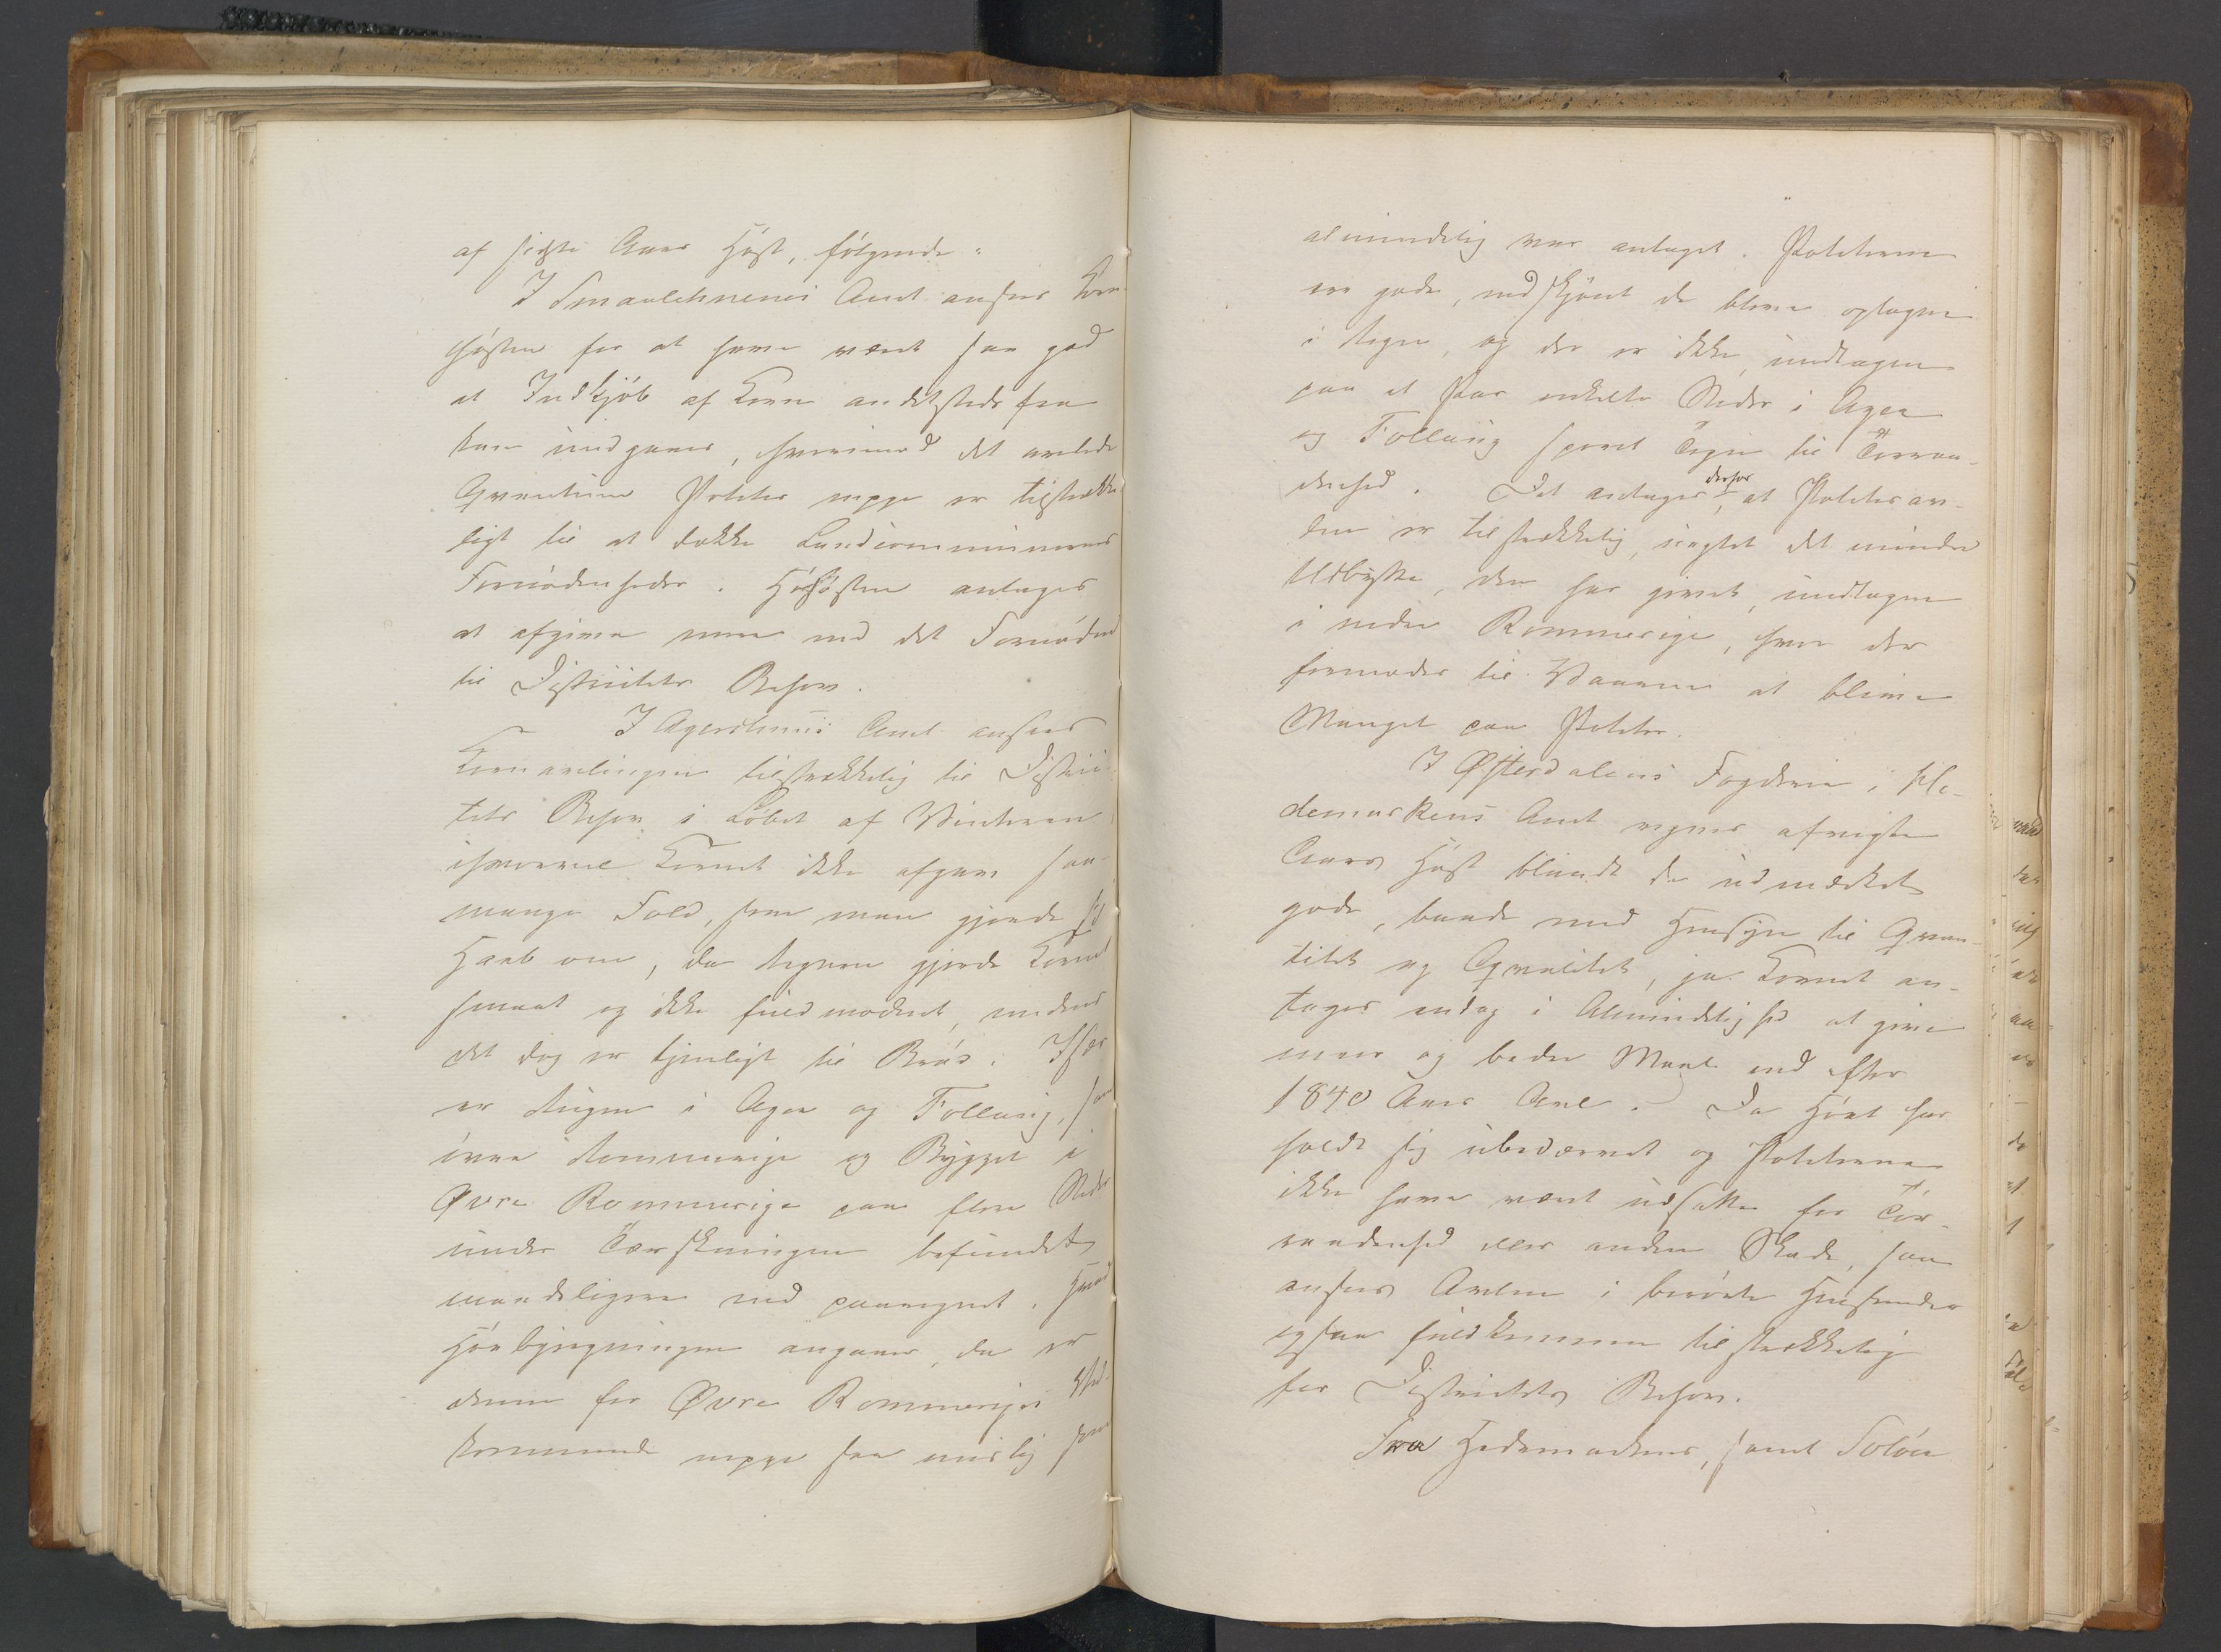 af sidste Aars Høst, følgende:
I Smaalehnenes Amt ansees Korn-
høsten for at have været saa god
at Indkjøb af Korn andetstedsfra
kan undgaaes, hvorimod det avlede
Qvantum Poteter neppe er tilstrække-
ligt til at dække Landcommunernes
Fornødenheder. Høhøsten antages
at afgive mere end det Fornødne
til Districtets Behov.
I Agershuus Amt ansees
Kornavlingen tilstrækkelig til Distric-
tets Behov i Løbet af Vinteren
ihvorvel Kornet ikke afgav saa
mange Fold, som man gjorde sig
Haab om, da Regnen gjorde Kornet
smaat og ikke fuldmodent, medens
det dog er tjenligt til Brug. Især
er Rugen i Ager og Follaug, saa
i nedre Rommerige og Bygget i
Øvre Rommerige paa flere Steder
under Tærskningen befundet
maadeligere end paaregnet. Hvad
Høebjergningen angaaer, da er
denne for Øvre Rommeriges Ved-
kommende neppe saa uslig som
almindelig var antaget. Poteterne
ere gode, endskjønt de bleve optagne
i Regn, og der er ikke, undtagen
paa et Par enkelte Steder i Ager
og Follaug sporet Tegn til Tørraa-
denhed. Det antages derfor, at Potetesav-
len er tilstrækkelig, uagtet det mindre
Udbytte, den har givet, undtagen
i nedre Rommerige, hvor der
formodes til Vaaren at blive
Mangel paa Poteter.
I Østerdalens Fogderie i He-
demarkens Amt regnes afvigte
Aars Høst blandt de udmærket
gode, baade med Hensyn til Qvan-
titet og Qvalitet, ja Kornet an-
tages endog i Almindelighed at give
meer og bedre Meel end efter
1840 Aars Avl. Da Høet har
holdt sig ubedærvet og Poteterne
ikke have været udsatte for Tør-
raadenhed eller anden Skade, saa
ansees Avlen i berørte Henseender
ogsaa fuldkommen tilstrækkelig
for Districtets Behov.
Fra Hedemarkens, samt Soløer